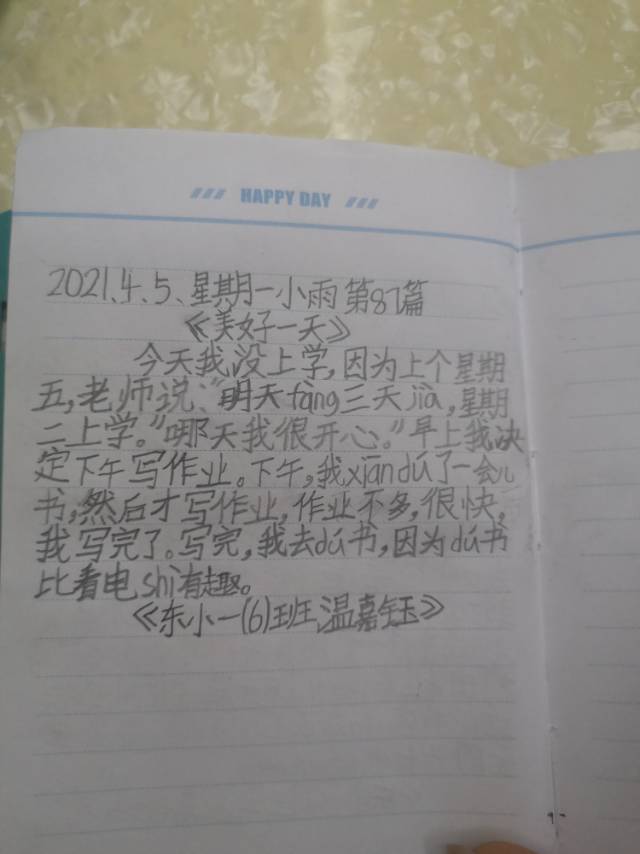 HAPPY DAY
2021.4.5、星期一小雨第87篇
《美好一天》
今天我没上学,因为上个星期
五,老师说:“明天fàng三天jià,星期
二上学。”哪天我很开心。”早上我决
定下午写作业。下午,我xiāndú了一会儿
书,然后才写作业,作业不多,很快,
我写完了。写完,我去dú书,因为dú书
比看电shì有趣。
《东小一(6)班温嘉钰》